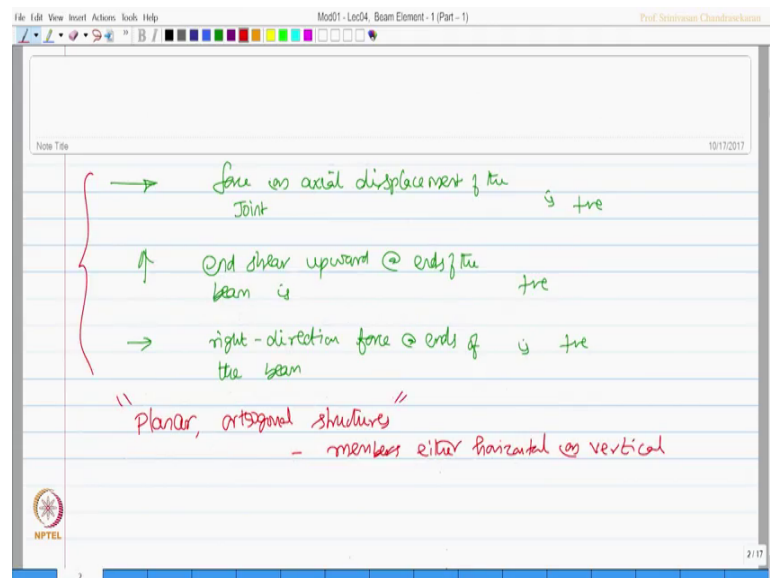 File Edit View Insert Actions Tools Help
Mod01 - Lec04, Beam Element - 1 (Part – 1)
Prof. Srinivasan Chandrasekaran
B I
Note Title
10/17/2017
force (or) axial displacement of the
Joint is +ve
end shear upward @ ends of the
beam is +ve
right-direction force @ ends of is +ve
the beam
"Planar, orthogonal structures"
- members either horizontal (or) vertical
NPTEL
2 / 17
2